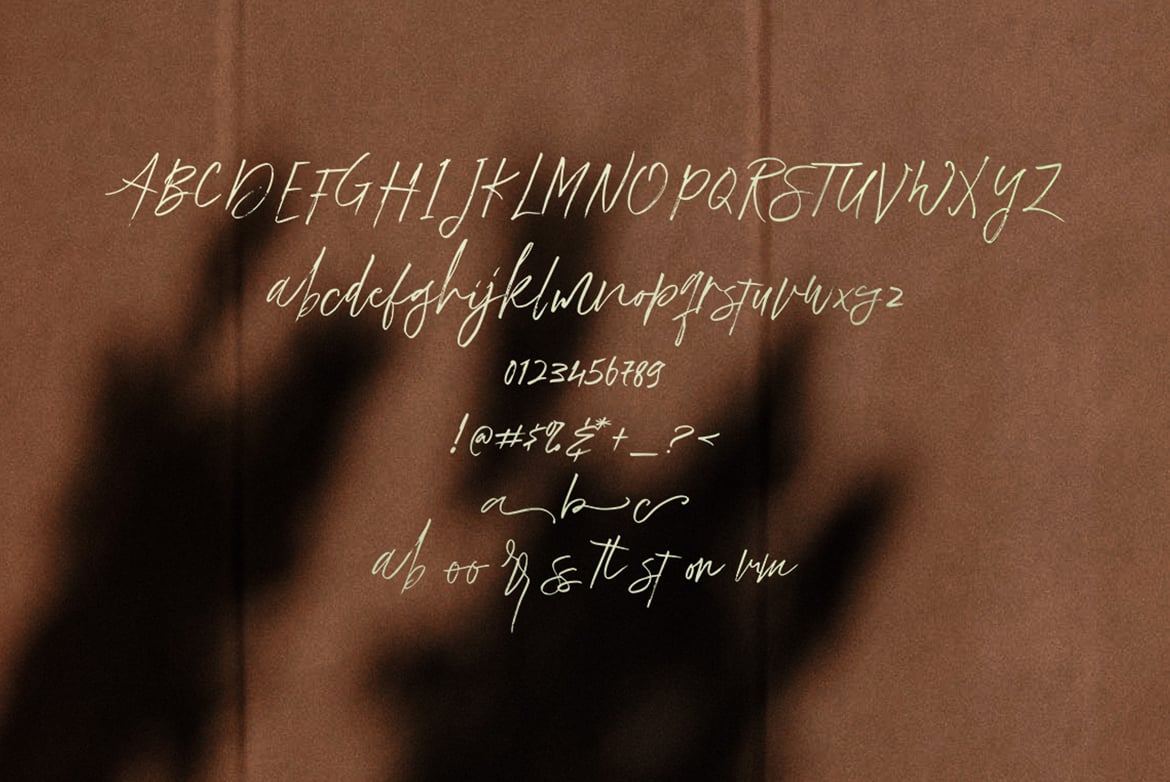 ABCDEFGHIJKLMNOPQRSTUVWXYZ
abcdefghijklmnopqrstuvwxyz
0123456789
!@#$%&*+_?<
a b c
ab oo ss tt st on